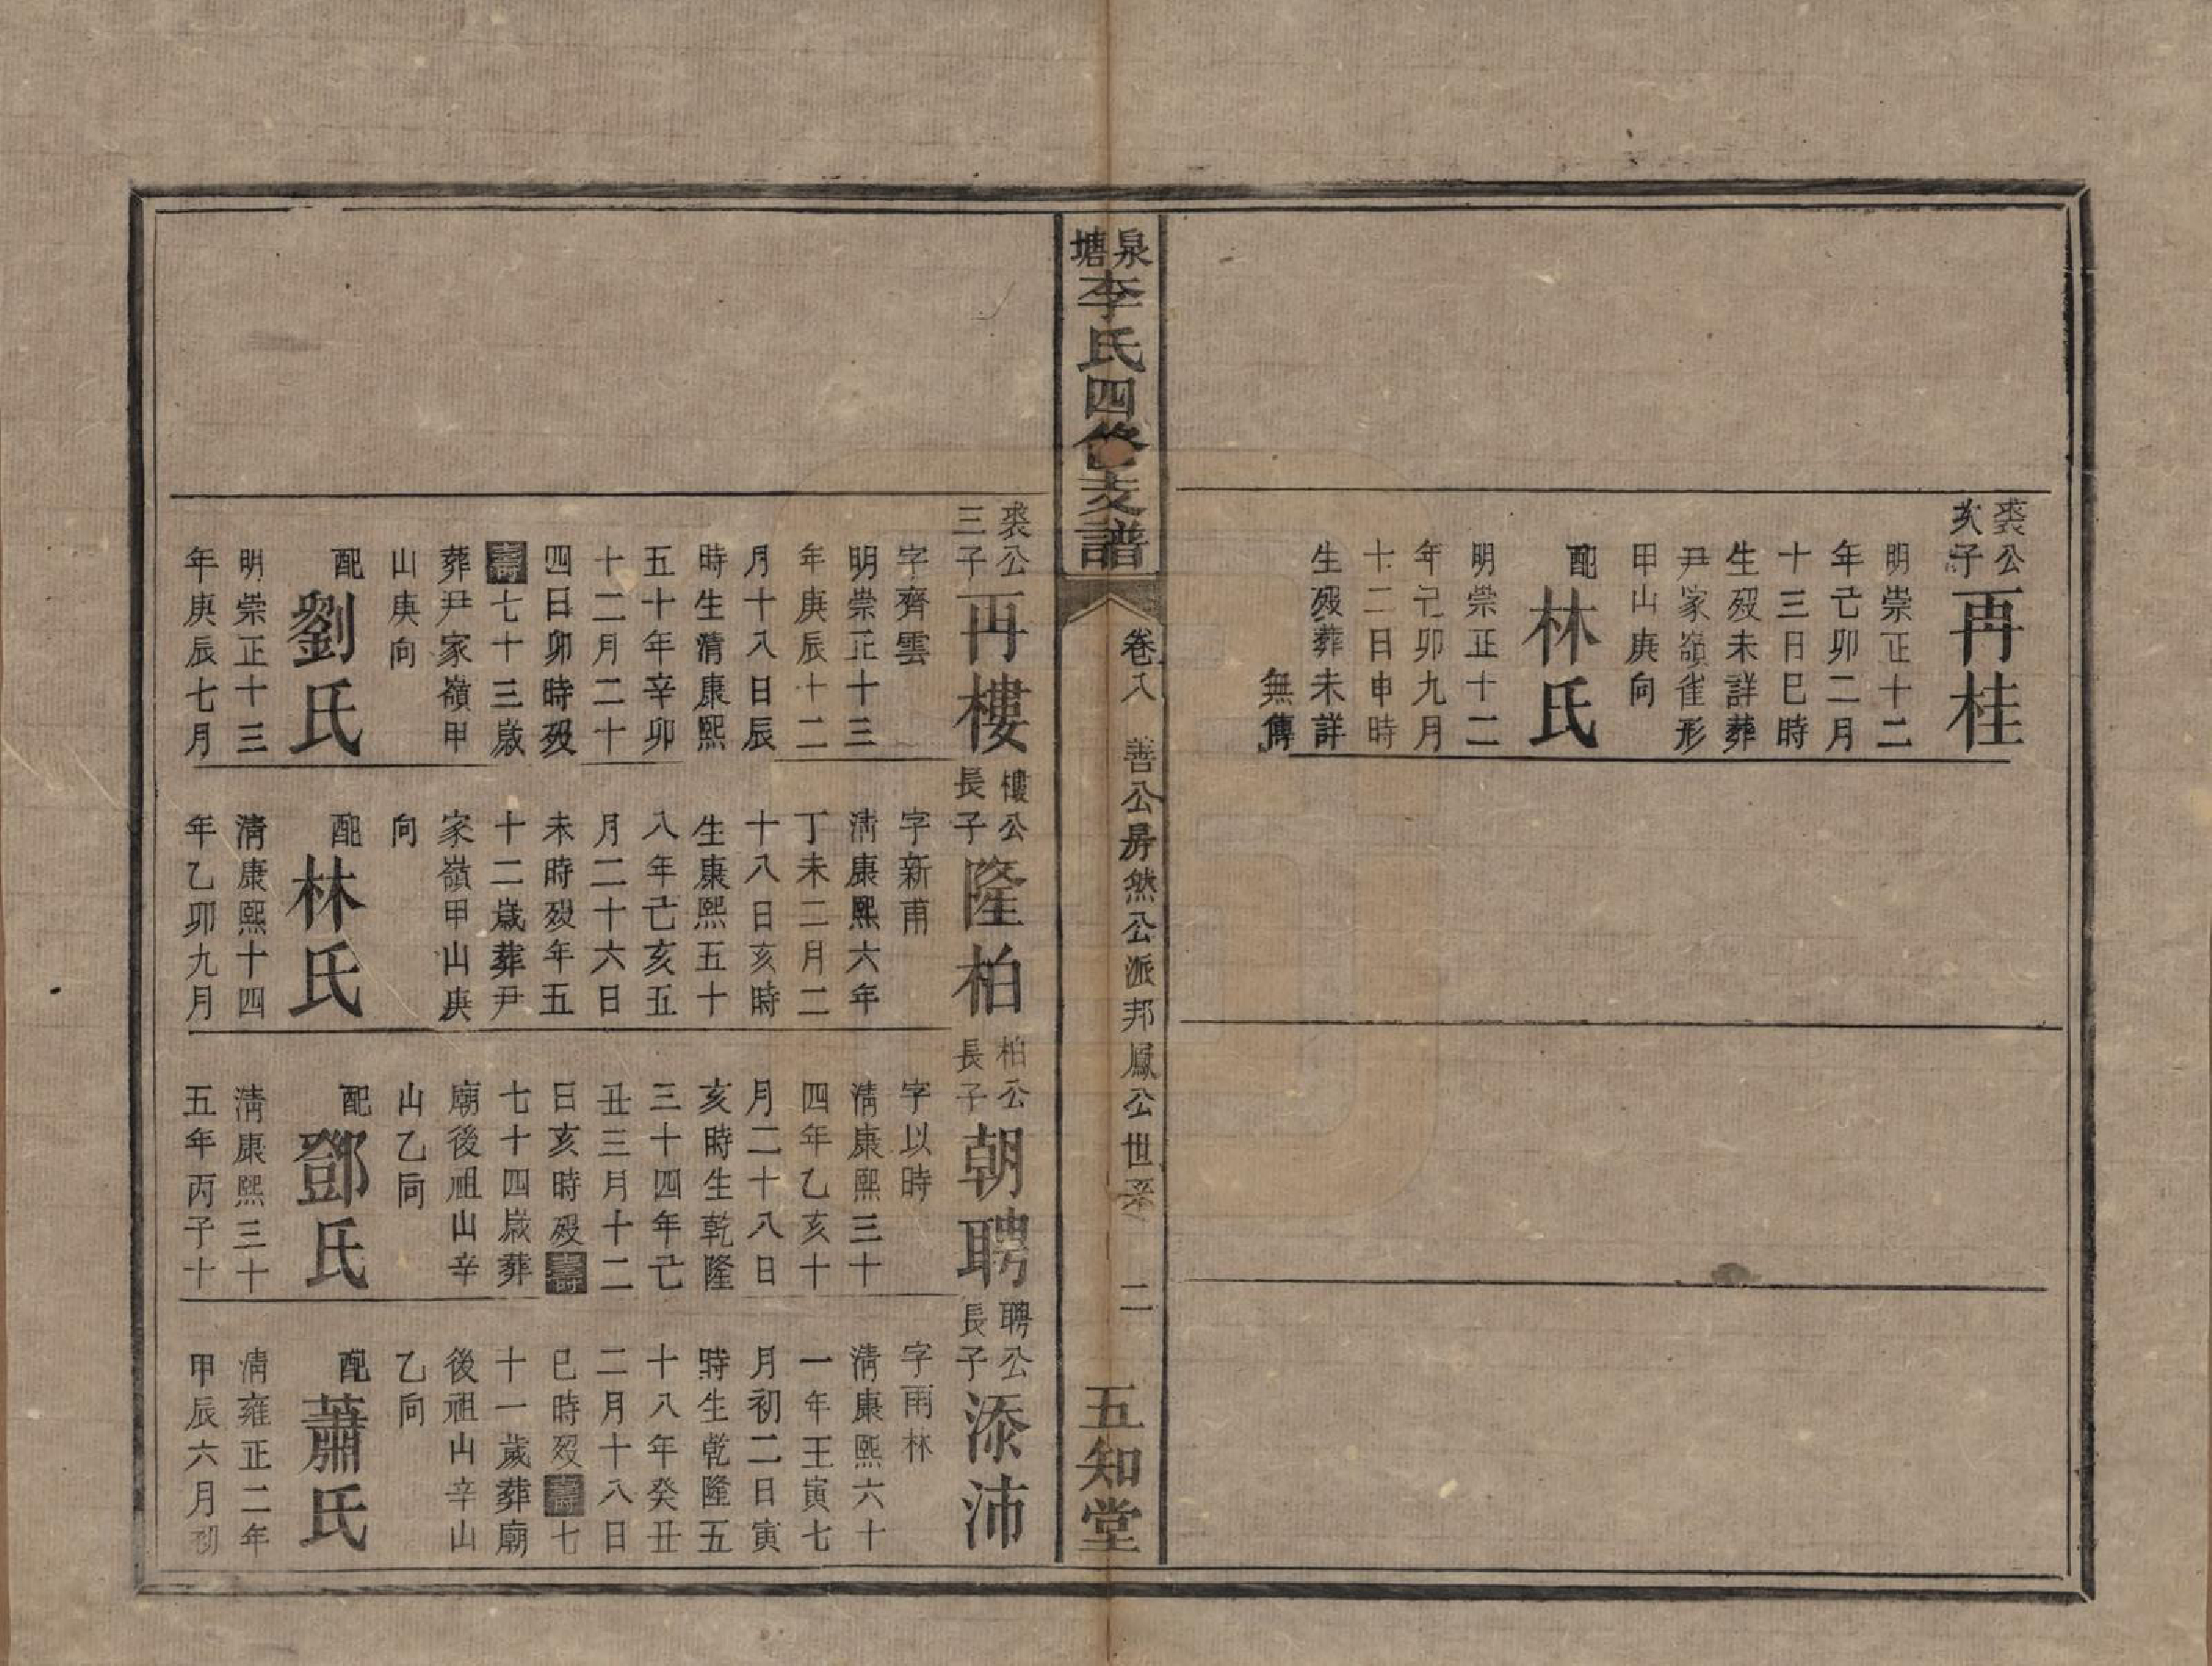 裘公
次子
再桂
明崇正十二
年己卯二月
十三日巳時
生歿未詳葬
尹家嶺雀形
甲山庚向
配
林氏
明崇正十二
年己卯九月
十二日申時
生歿葬未詳
無傳
泉塘
李氏四修支譜
卷八
善公房然公派邦鳳公世系
二
五知堂
裘公
三子
再樓
字齊雲
明崇正十三
年庚辰十二
月十八日辰
時生清康熙
五十年辛卯
十二月二十
四日卯時歿
壽七十三歲
葬尹家嶺甲
山庚向
配
劉氏
明崇正十三
年庚辰七月
樓公
長子
隆柏
字新甫
清康熙六年
丁未二月二
十八日亥時
生康熙五十
八年己亥五
月二十六日
未時歿年五
十二歲葬尹
家嶺甲山庚
向
配
林氏
清康熙十四
年乙卯九月
柏公
長子
朝聘
字以時
清康熙三十
四年乙亥十
月二十八日
亥時生乾隆
三十四年己
丑三月十二
日亥時歿壽
七十四歲葬
廟後祖山辛
山乙向
配
鄧氏
清康熙三十
五年丙子十
聘公
長子
添沛
字雨林
清康熙六十
一年王寅七
月初二日寅
時生乾隆五
十八年癸丑
二月十八日
巳時歿壽七
十一歲葬廟
後祖山辛山
乙向
配
蕭氏
清雍正二年
甲辰六月初